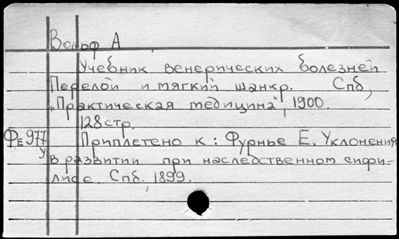 Вольф А
Учебник венерических болезней
Перелой и мягкий шанкр. Спб,
„Практическая медицина", 1900.
128 стр.
Фе977 Приплетено к: Фурнье Е. Уклонения
у в развитии при наследственном сифи-
лисе. Спб. 1899.